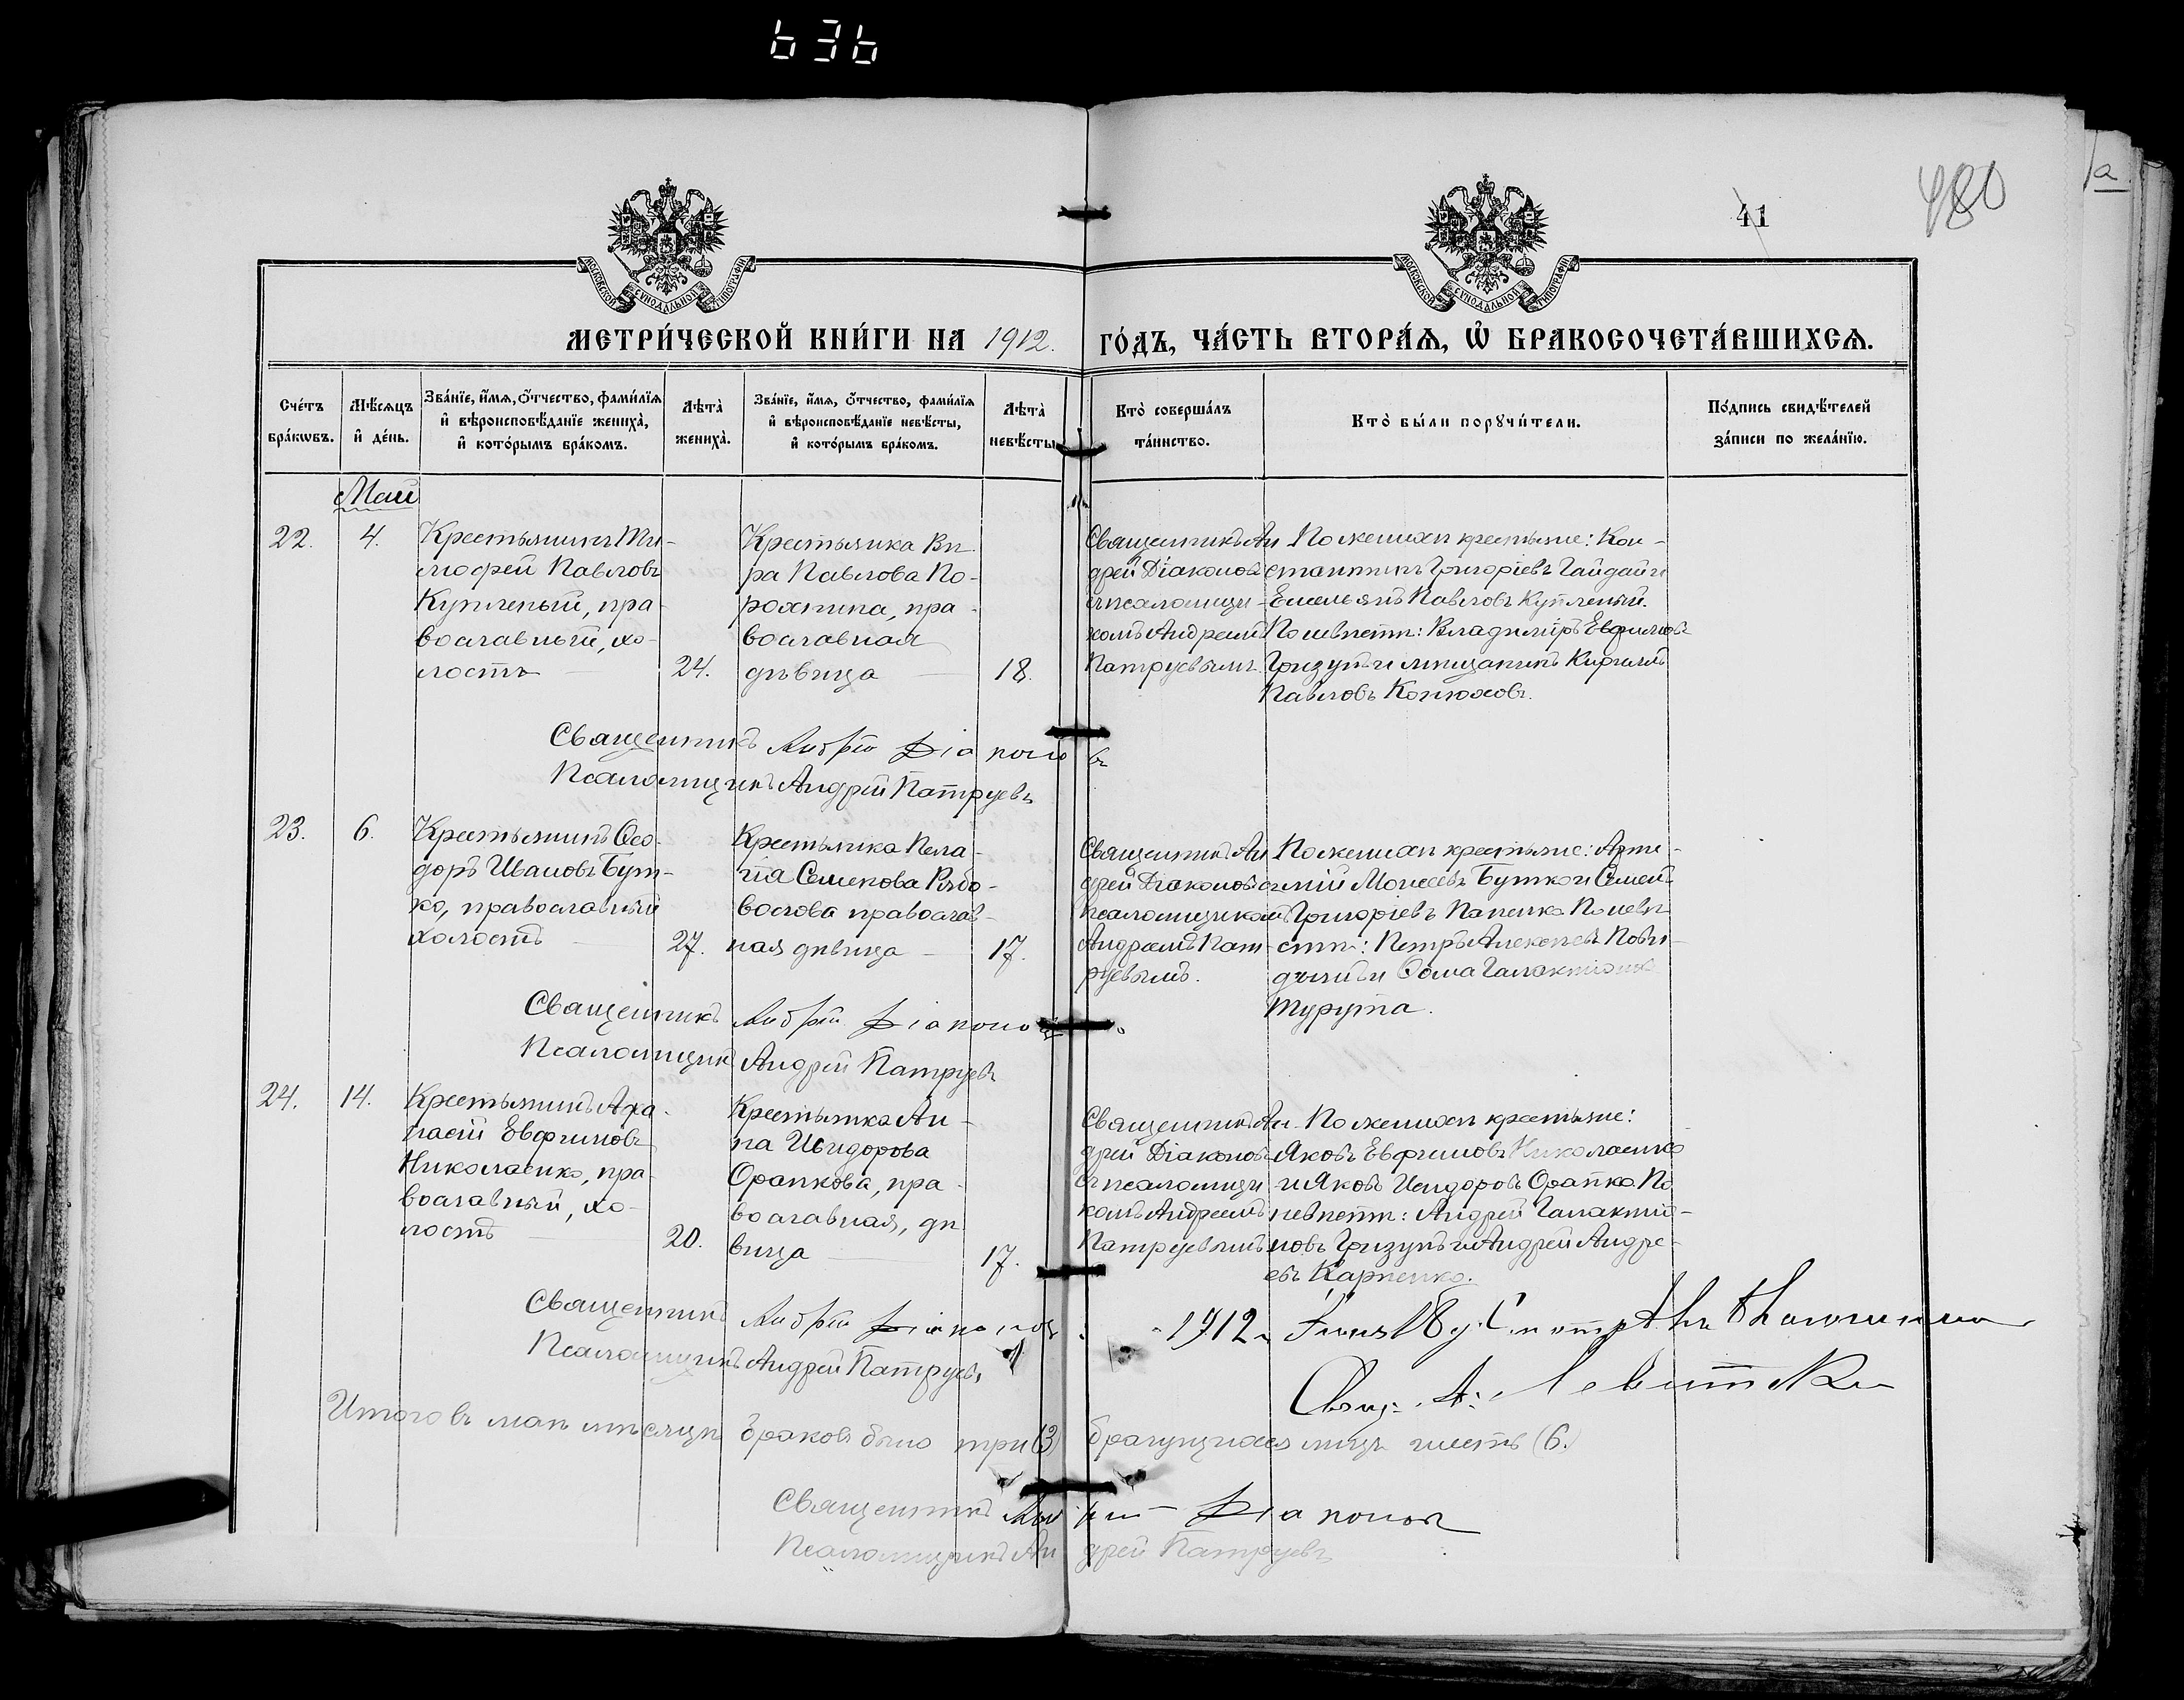 636
41
480
а
МОСКОВСКОЙ СУНОДАЛЬНОЙ ТИПОГРАФІИ
МОСКОВСКОЙ СУНОДАЛЬНОЙ ТИПОГРАФІИ
МЕТРИ́ЧЕСКОЙ КНИ́ГИ НА 1912. ГО́ДЪ, ЧА́СТЬ ВТОРА́Ѧ, Ѽ БРАКОСОЧЕТА́ВШИХСѦ.
Сче́тъ бра́кѡвъ.
Мѣ́сѧцъ и҆ де́нь.
Зва́нїе, и҆́мѧ, ѻ҆́тчество, фами́лїѧ и҆ вѣроисповѣ́данїе жениха̀, и҆ кото́рымъ бра́комъ.
Лѣта̀ жениха̀.
Зва́нїе, и҆́мѧ, ѻ҆́тчество, фами́лїѧ и҆ вѣроисповѣ́данїе невѣ́сты, и҆ кото́рымъ бра́комъ.
Лѣта̀ невѣ́сты
Кто̀ соверша́лъ та́инство.
Кто̀ бы́ли порꙋчи́тели.
По́дпись свидѣ́телей за́писи по жела́нїю.
Май
22.
4.
Крестьянинъ Ти-
мофей Павловъ
Купленый, пра-
вославный, хо-
лостъ
24.
Крестьянка Вѣ
ра Павлова По-
рохнина, пра-
вославная
дѣвица
18.
Священникъ Ан
дрей Діаконовъ
съ псаломщи-
комъ Андреемъ
Патруевымъ.
По женихѣ крестьяне: Кон-
стантинъ Григоріевъ Гайдай и
Емельянъ Павловъ Купленый.
По невѣстѣ: Владиміръ Евфимовъ
Гризунъ и мѣщанинъ Кириллъ
Павловъ Конюховъ.
Священникъ Андрей Діаконовъ
Псаломщикъ Андрей Патруевъ
23.
6.
Крестьянинъ Ѳео-
доръ Ивановъ Бут-
ко, православный
холостъ
27.
Крестьянка Пела-
гія Семенова Рябо-
волова православ-
ная дѣвица
17.
Священникъ Ан
дрей Діаконовъ съ
псаломщикомъ
Андреемъ Пат-
руевымъ.
По женихѣ крестьяне: Арте-
мій Моисеевъ Бутко и Семенъ
Григоріевъ Папенко. По невѣ-
стѣ: Петръ Алексѣевъ
и Ѳома Галактіоновъ
Турута.
Священникъ Андрей Діаконовъ
Псаломщикъ Андрей Патруевъ
24.
14.
Крестьянинъ Афа-
насій Евфимовъ
Николаенко, пра-
вославный, хо-
лостъ
20.
Крестьянка Ан-
на Исидорова
Орапкова, пра-
вославная, дѣ
вица
17.
Священникъ Ан-
дрей Діаконовъ
съ псаломщи
комъ Андреемъ
Патруевымъ
По женихѣ крестьяне:
Яковъ Евфимовъ Николаенко
и Яковъ Исидоровъ Орапко. По
невѣстѣ: Андрей Галактіо-
новъ Гризунъ и Андрей Андре-
евъ Карпенко.
Священникъ Андрей Діаконовъ
Псаломщикъ Андрей Патруевъ
1912 г. 18
Свящ. А. Левитск
Итого въ маѣ мѣсяцѣ браковъ было три (3) брачущихся лицъ шесть (6.)
Священникъ Андрей Діаконовъ
Псаломщикъ Андрей Патруевъ